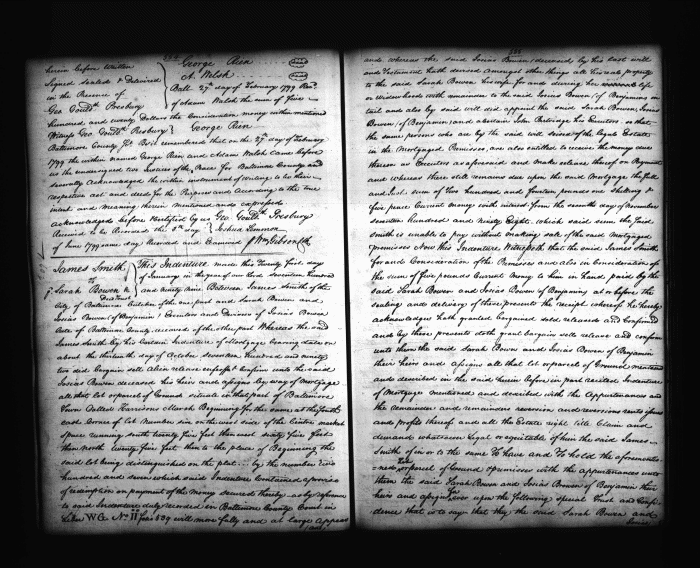 herein before Written
Signed sealed & Delivered
in the Presence of
Geo Presbury
George Reen
A. Welsh
Balt 27th day of February 1799 Recd
of Adam Welsh the sum of Five
hundred and twenty Dollars the Consideration money within mentioned
Witness Geo Presbury George Reen
Baltimore County Be it remembered that on the 27th day of February
1799 the within named George Reen and Adam Welsh Came before
us the undersigned two Justices of the Peace for Baltimore County and
severally acknowledged the within instrument of writing to be their
respective act and deed for the Purposes and According to the true
intent and Meaning herein Mentioned and expressed
Acknowledged before & Certified by us Geo Presbury
Received to be Recorded the 5th day Joshua Lemmon
of June 1799 same day Recorded and Examined Wm Gibson Clk
James Smith This Indenture made this Twenty first day
to of January in the year of our Lord seventeen hundred
Sarah Bowen and ninety nine Between James Smith of the
City of Baltimore of the one part and Sarah Bowen and
Josias Bowen (of Benjamin) Executors and Devisees of Josias Bowen
late of Baltimore County deceased of the other part Whereas the said
James Smith by his Certain Indenture of Mortgage bearing date on
about the thirteenth day of October seventeen hundred and ninety
two did Bargain sell Alien release enfeoff & Confirm unto the said
Josias Bowen deceased his heirs and assigns by way of Mortgage
all that lot or parcel of Ground situate in that part of Baltimore
Town Called Harrisons Marsh Beginning for the same at the south
east Corner of Lot Number six on the west side of the Centre market
space running south twenty five feet then west sixty five feet
then north twenty five feet then to the place of Beginning the
said lot being distinguished on the plat by the number
hundred and seven which said Indenture Contained a proviso
of redemption on payment of the money secured thereby as by reference
to said Indenture duly recorded in Baltimore County Court in
Liber W G No II folio 539 will more fully and at large appear
and
and whereas the said Josias Bowen deceased by his last will
and Testament hath devised amongst other things all his real property
to the said Sarah Bowen his wife for and during her life
or widowhood with remainder to the said Josias Bowen (of Benjamin) in
and also by said will did appoint the said Sarah Bowen Josias
Bowen (of Benjamin) and a certain John Partridge his Executors so that
the same persons who are by the said will seized of the legal Estate
in the Mortgaged Premises, are also entitled to receive the money due
thereon as Executors as aforesaid and make release thereof on Payment
and whereas there still remains due upon the said Mortgage the full
and Just sum of two hundred and fourteen pounds one shilling &
five pence Current money with interest from the seventh day of November
seventeen hundred and Ninety Eight, which said sum the said
Smith is unable to pay without making sale of the said Mortgaged
premises Now this Indenture Witnesseth that the said James Smith
for and Consideration of the Premises and also in Consideration of
the sum of five Pounds Current Money to him in hand paid by the
said Sarah Bowen and Josias Bowen of Benjamin at or before the
sealing and delivery of these presents the receipt whereof he hereby
acknowledges hath granted bargained sold released and Confirmed
and by these presents doth grant bargain sell release and confirm
unto them the said Sarah Bowen and Josias Bowen of Benjamin
their heirs and assigns all that lot or parcel of Ground mentioned
and described in the said herein before in part recited Indenture
of Mortgage mentioned and described with the Appurtenances and
the remainder and remainders reversion and reversions rents issues
and profits thereof and all the Estate right Title Claim and
demand whatsoever Legal or equitable of him the said James
Smith of in or to the same To have and To hold the aforementio-
-ned Lot or parcel of Ground & premises with the appurtenances unto
them the said Sarah Bowen and Josias Bowen of Benjamin their
heirs and assigns for ever upon the following special Trust and Confi-
dence that is to say that they the said Sarah Bowen and
Josias